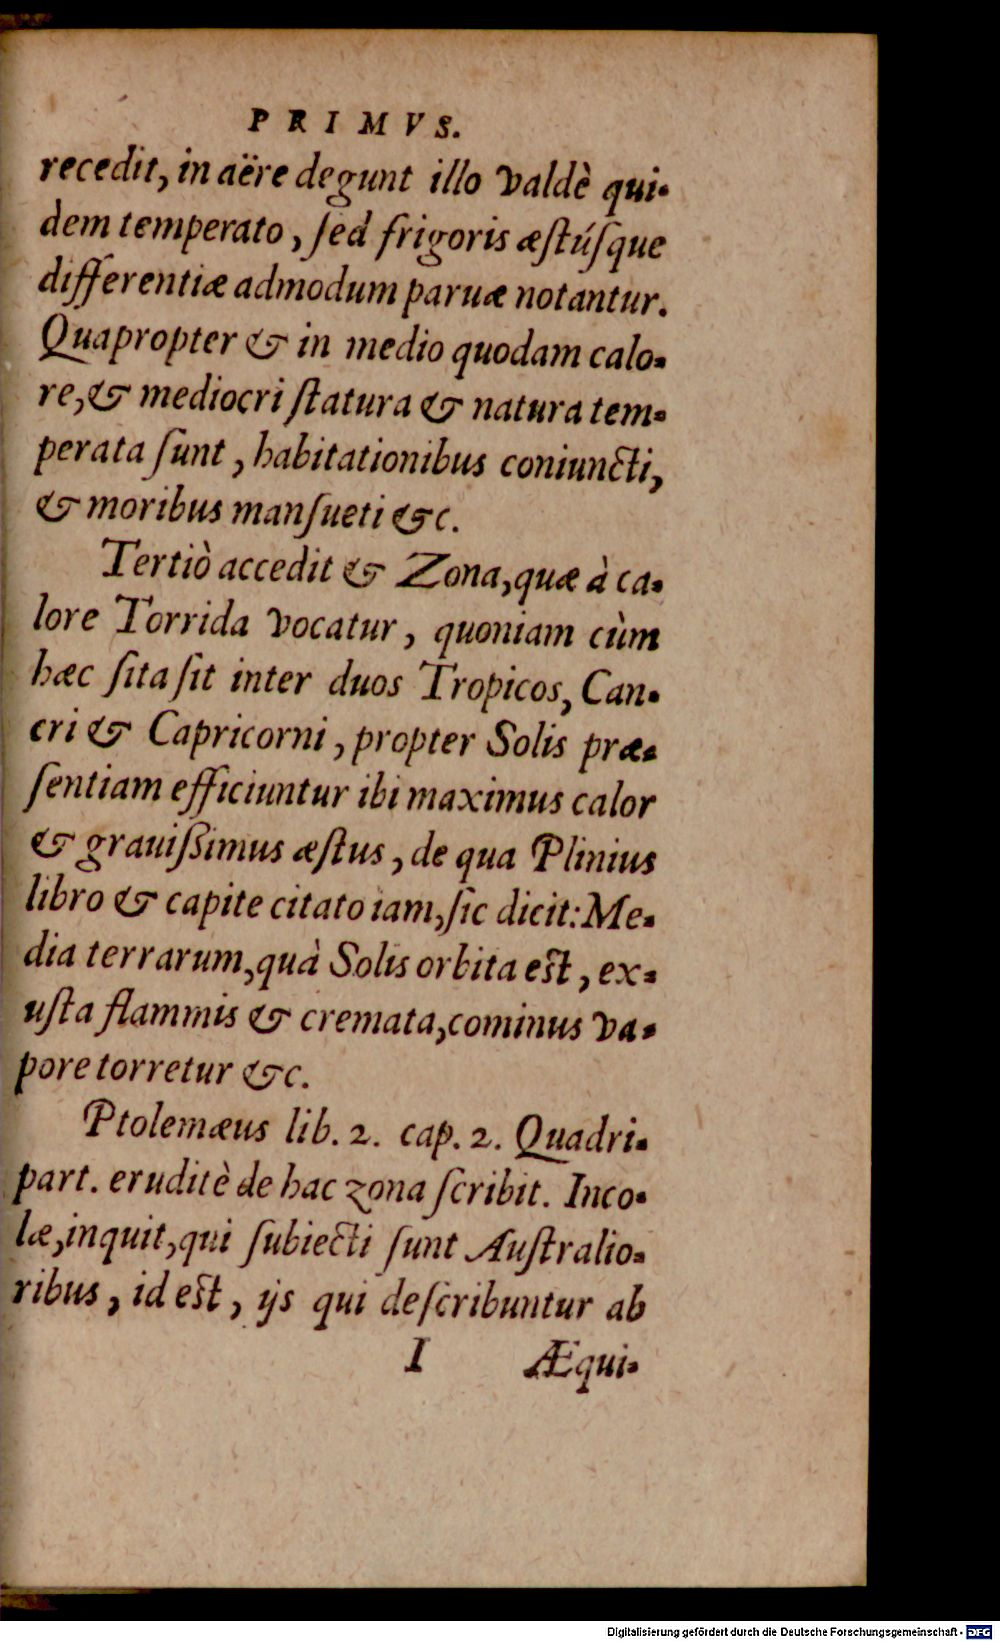 PRIMVS.
recedit, in aëre degunt illo valdè qui-
dem temperato, sed frigoris æstúsque
differentiæ admodum paruæ notantur.
Quapropter & in medio quodam calo-
re, & mediocri statura & natura tem-
perata sunt, habitationibus coniuncti,
& moribus mansueti &c.
Tertiò accedit & Zona, quæ à ca-
lore Torrida vocatur, quoniam cùm
hæc sita sit inter duos Tropicos, Can-
cri & Capricorni, propter Solis præ-
sentiam efficiuntur ibi maximus calor
& grauißimus æstus, de qua Plinius
libro & capite citato iam, sic dicit: Me-
dia terrarum, quà Solis orbita est, ex-
usta flammis & cremata, cominus va-
pore torretur &c.
Ptolemæus lib. 2. cap. 2. Quadri-
part. eruditè de hac zona scribit. Inco-
læ, inquit, qui subiecti sunt Australio-
ribus, id est, ijs qui describuntur ab
I Æqui-
Digitalisierung gefördert durch die Deutsche Forschungsgemeinschaft - DFG